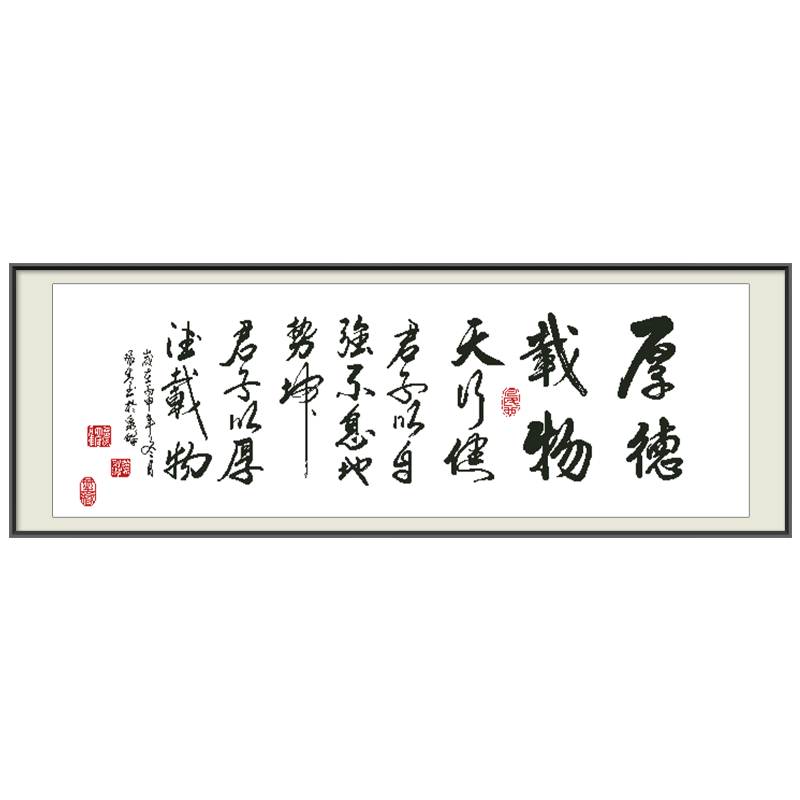 厚德
載物
天行健
君子以自
強不息地
勢坤
君子以厚
德載物
歲在丙申年冬月